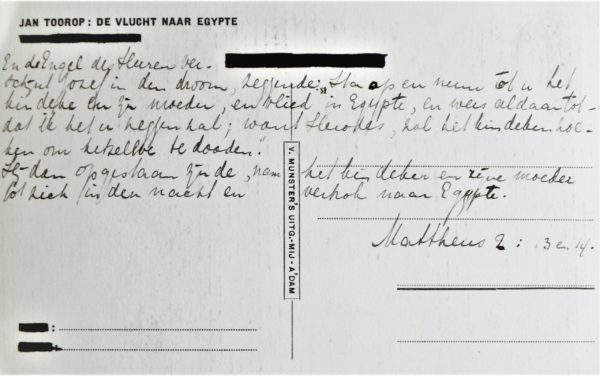 JAN TOOROP: DE VLUCHT NAAR EGYPTE
En de Engel des Heeren ver-
schynt Josef in den droom, zeggende: "Sta op en neem tot u het
kindeke en zyn moeder, en vlied in Egypte, en wees aldaar tot-
dat ik het u zeggen zal; want Herodes, zal het kindeken zoe-
ken om hetzelve te dooden."
Hy dan opgestaan zynde, nam het kindeken en zyne moeder
tot zich in den nacht en vertrok naar Egypte.
Mattheus 2: 13 en 14.
V. MUNSTER'S UITG.-MIJ - A'DAM